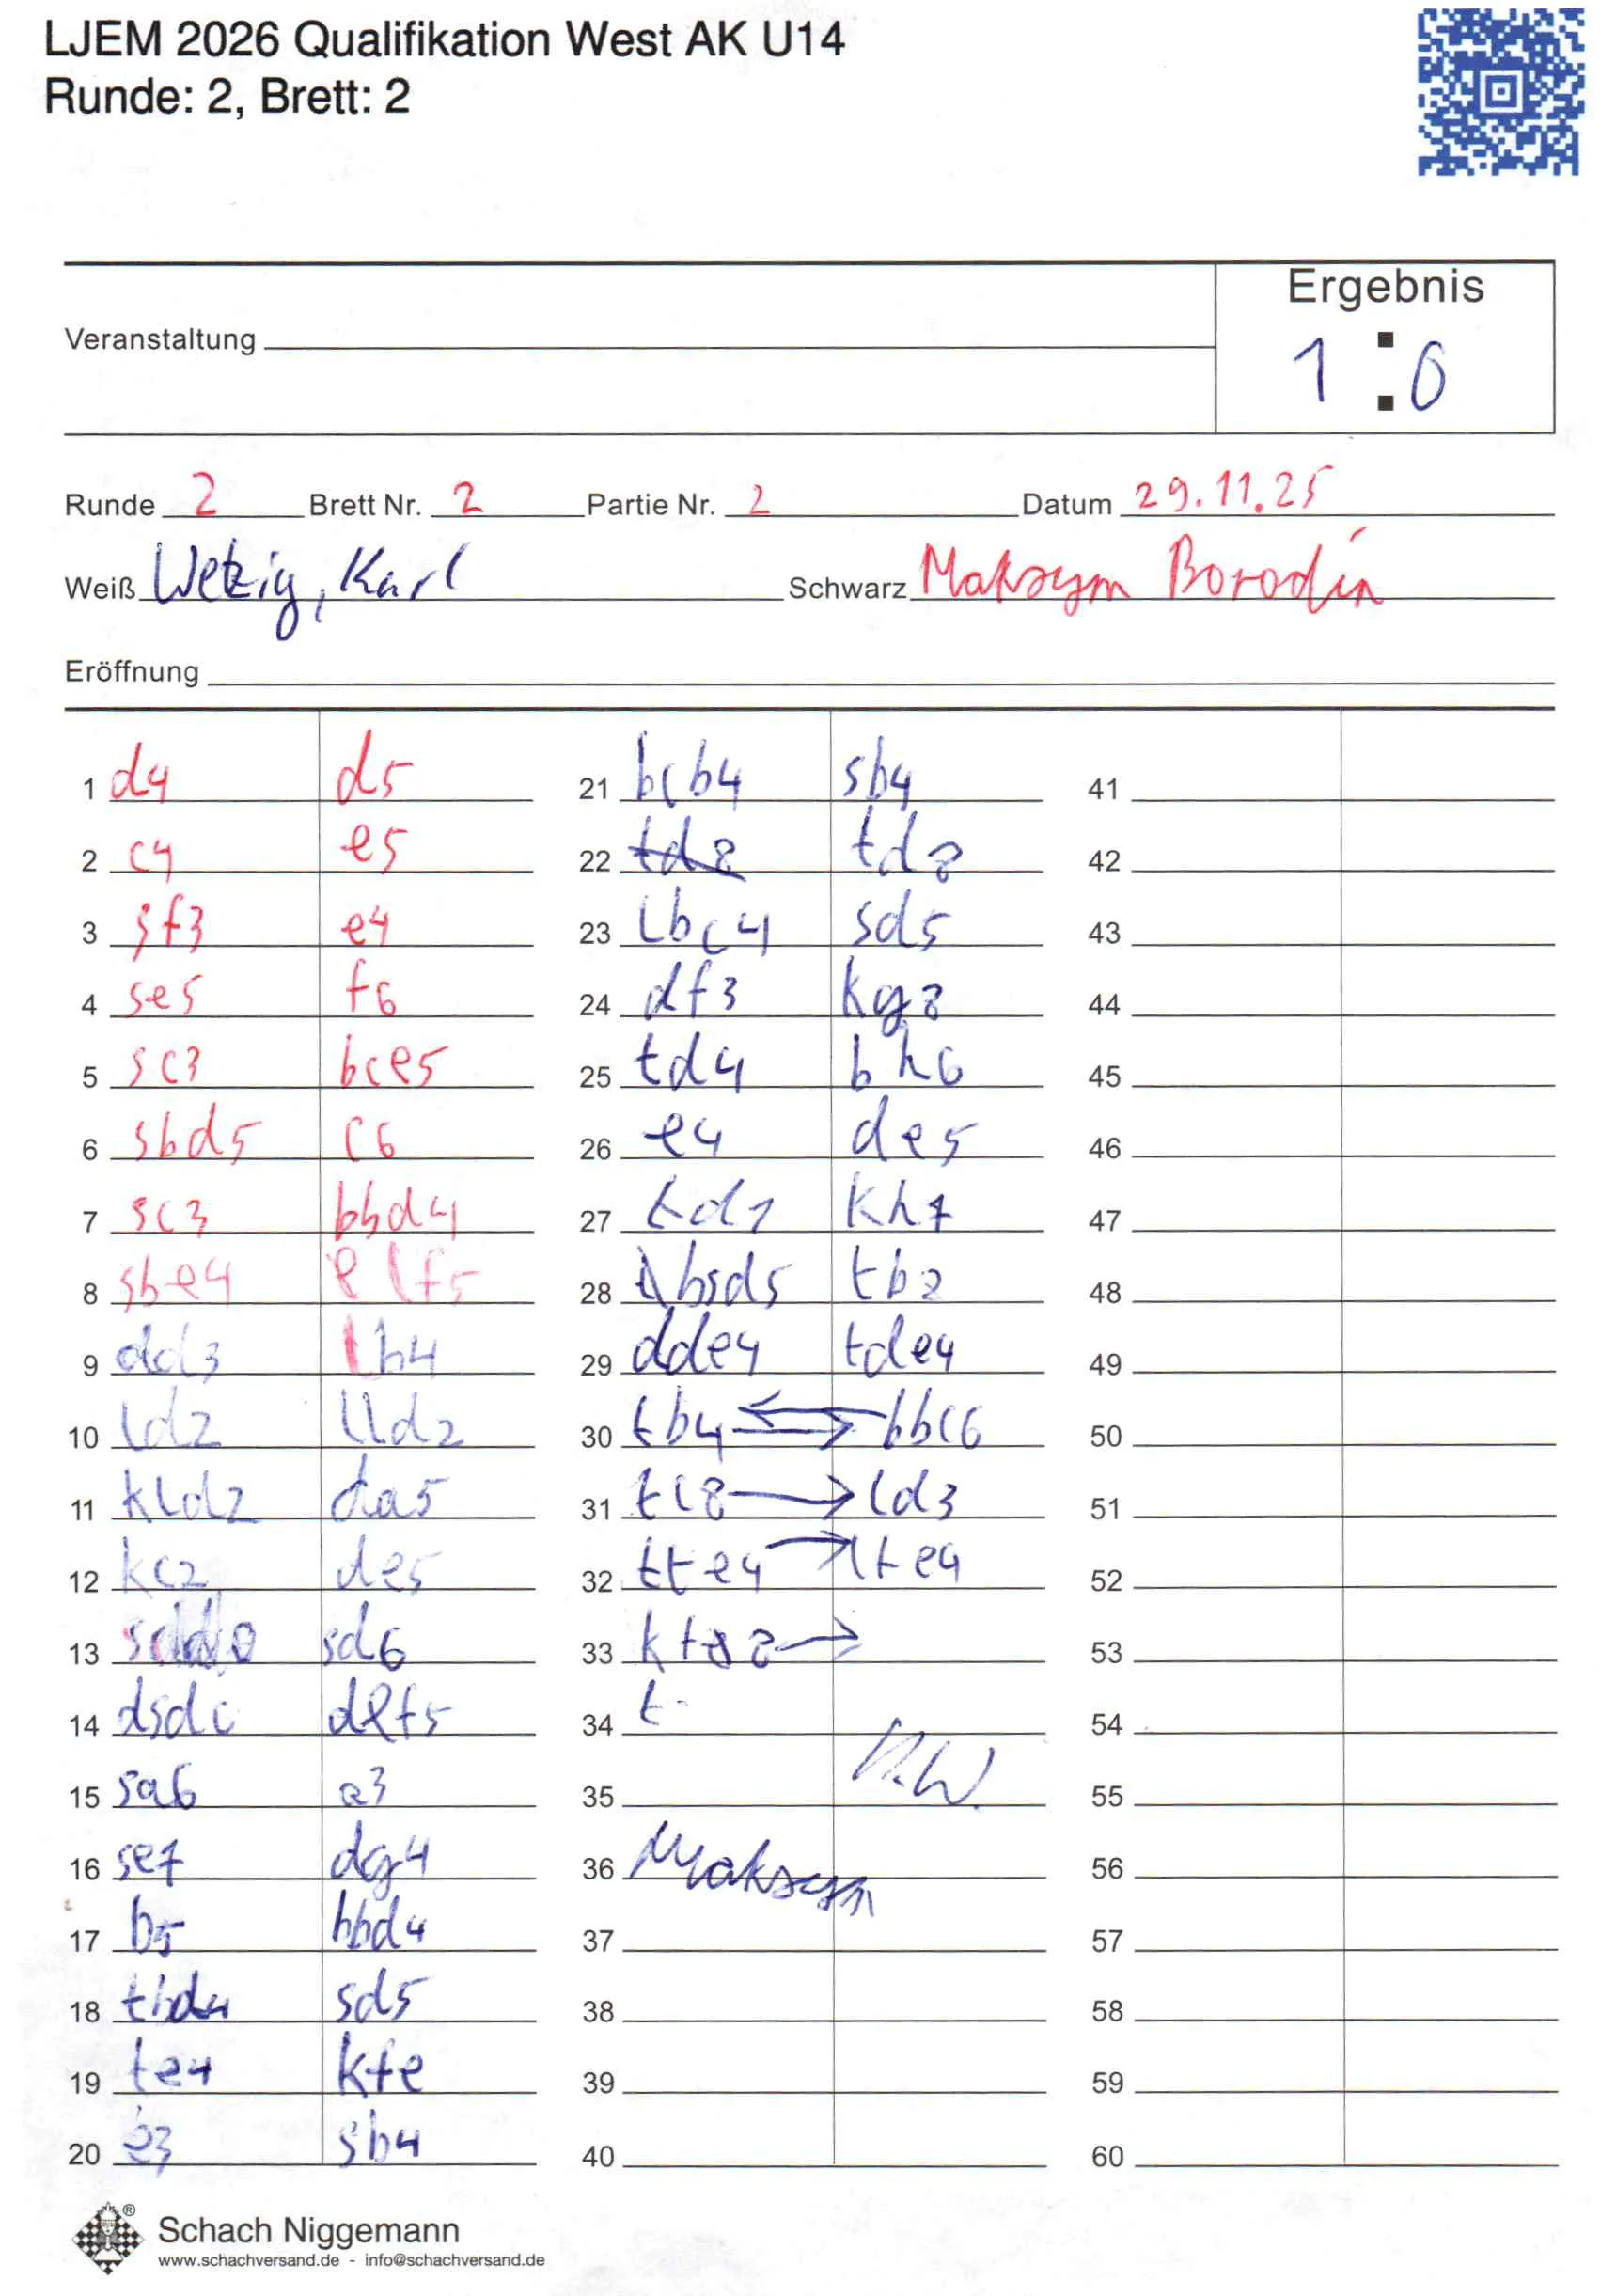 LJEM 2026 Qualifikation West AK U14
Runde: 2, Brett: 2
Ergebnis
Veranstaltung
1 : 0
Runde 2 Brett Nr. 2 Partie Nr. 2 Datum 29.11.25
Weiß Wetzig, Karl Schwarz Maksym Borodin
Eröffnung
1 d4 d5 21 bcb4 sb4 41
2 c4 e5 22 td8 42
3 sf3 e4 23 lbc4 sd5 43
4 se5 f6 24 df3 kg8 44
5 sc3 bce5 25 td4 bh6 45
6 sbd5 c6 26 e4 de5 46
7 sc3 bbd4 27 td1 kh7 47
8 sbe4 lf5 28 bsd5 tb2 48
9 dd3 lb4 29 dde4 tde4 49
10 ld2 lld2 30 tb4 bbc6 50
11 kld2 da5 31 tc8 ld3 51
12 kc2 de5 32 tte4 lte4 52
13 sd6 33 53
14 dlf5 34 t 54
15 sa6 a3 35 K.W. 55
16 se7 dg4 36 Maksym 56
17 b5 bbd4 37 57
18 tbd4 sd5 38 58
19 te4 kfe 39 59
20 e3 sb4 40 60
Schach Niggemann
www.schachversand.de - info@schachversand.de